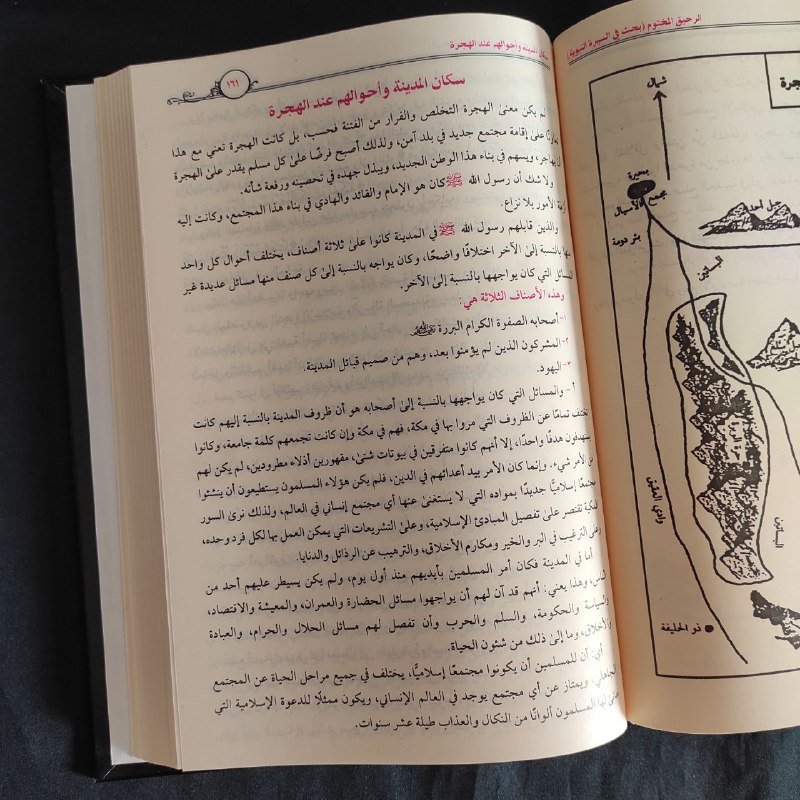 سكان المدينة وأحوالهم عند الهجرة
١٦١
سكان المدينة وأحوالهم عند الهجرة
لم يكن معنىٰ الهجرة التخلص والفرار من الفتنة فحسب، بل كانت الهجرة تعني مع هذا
تعاونًا علىٰ إقامة مجتمع جديد في بلد آمن، ولذلك أصبح فرضًا علىٰ كل مسلم يقدر علىٰ الهجرة
أن يهاجر، ويسهم في بناء هذا الوطن الجديد، ويبذل جهده في تحصينه ورفعة شأنه.
ولا شك أن رسول الله ﷺ كان هو الإمام والقائد والهادي في بناء هذا المجتمع، وكانت إليه
أزمة الأمور بلا نزاع.
والذين قابلهم رسول الله ﷺ في المدينة كانوا علىٰ ثلاثة أصناف، يختلف أحوال كل واحد
منها بالنسبة إلىٰ الآخر اختلافًا واضحًا، وكان يواجه بالنسبة إلىٰ كل صنف منها مسائل عديدة غير
المسائل التي كان يواجهها بالنسبة إلىٰ الآخر.
وهذه الأصناف الثلاثة هي:
١- أصحابه الصفوة الكرام البررة
٢- المشركون الذين لم يؤمنوا بعد، وهم من صميم قبائل المدينة.
٣- اليهود.
أ- والمسائل التي كان يواجهها بالنسبة إلىٰ أصحابه هو أن ظروف المدينة بالنسبة إليهم كانت
تختلف تمامًا عن الظروف التي مروا بها في مكة، فهم في مكة وإن كانت تجمعهم كلمة جامعة، وكانوا
يستهدفون هدفًا واحدًا، إلا أنهم كانوا متفرقين في بيوتات شتىٰ، مقهورين أذلاء مطرودين، لم يكن لهم
من الأمر شيء. وإنما كان الأمر بيد أعدائهم في الدين، فلم يكن هؤلاء المسلمون يستطيعون أن ينشئوا
مجتمعًا إسلاميًّا جديدًا بمواده التي لا يستغنىٰ عنها أي مجتمع إنساني في العالم، ولذلك نرىٰ السور
المكية تقتصر علىٰ تفصيل المبادئ الإسلامية، وعلىٰ التشريعات التي يمكن العمل بها لكل فرد وحده،
وعلىٰ الترغيب في البر والخير ومكارم الأخلاق، والترهيب عن الرذائل والدنايا.
أما في المدينة فكان أمر المسلمين بأيديهم منذ أول يوم، ولم يكن يسيطر عليهم أحد من
الناس، وهذا يعني: أنهم قد آن لهم أن يواجهوا مسائل الحضارة والعمران، والمعيشة والاقتصاد،
والسياسة والحكومة، والسلم والحرب وأن تفصل لهم مسائل الحلال والحرام، والعبادة
والأخلاق، وما إلىٰ ذلك من شئون الحياة.
أي: آن للمسلمين أن يكونوا مجتمعًا إسلاميًّا، يختلف في جميع مراحل الحياة عن المجتمع
الجاهلي، ويمتاز عن أي مجتمع يوجد في العالم الإنساني، ويكون ممثلًا للدعوة الإسلامية التي
عانىٰ لها المسلمون ألوانًا من النكال والعذاب طيلة عشر سنوات.
الرحيق المختوم (بحث في السيرة النبوية)
شمال
بحيرة
مجمع الأسيال
بئر رومة
جبل أحد
البساتين
وادي العقيق
البساتين
ذو الحليفة